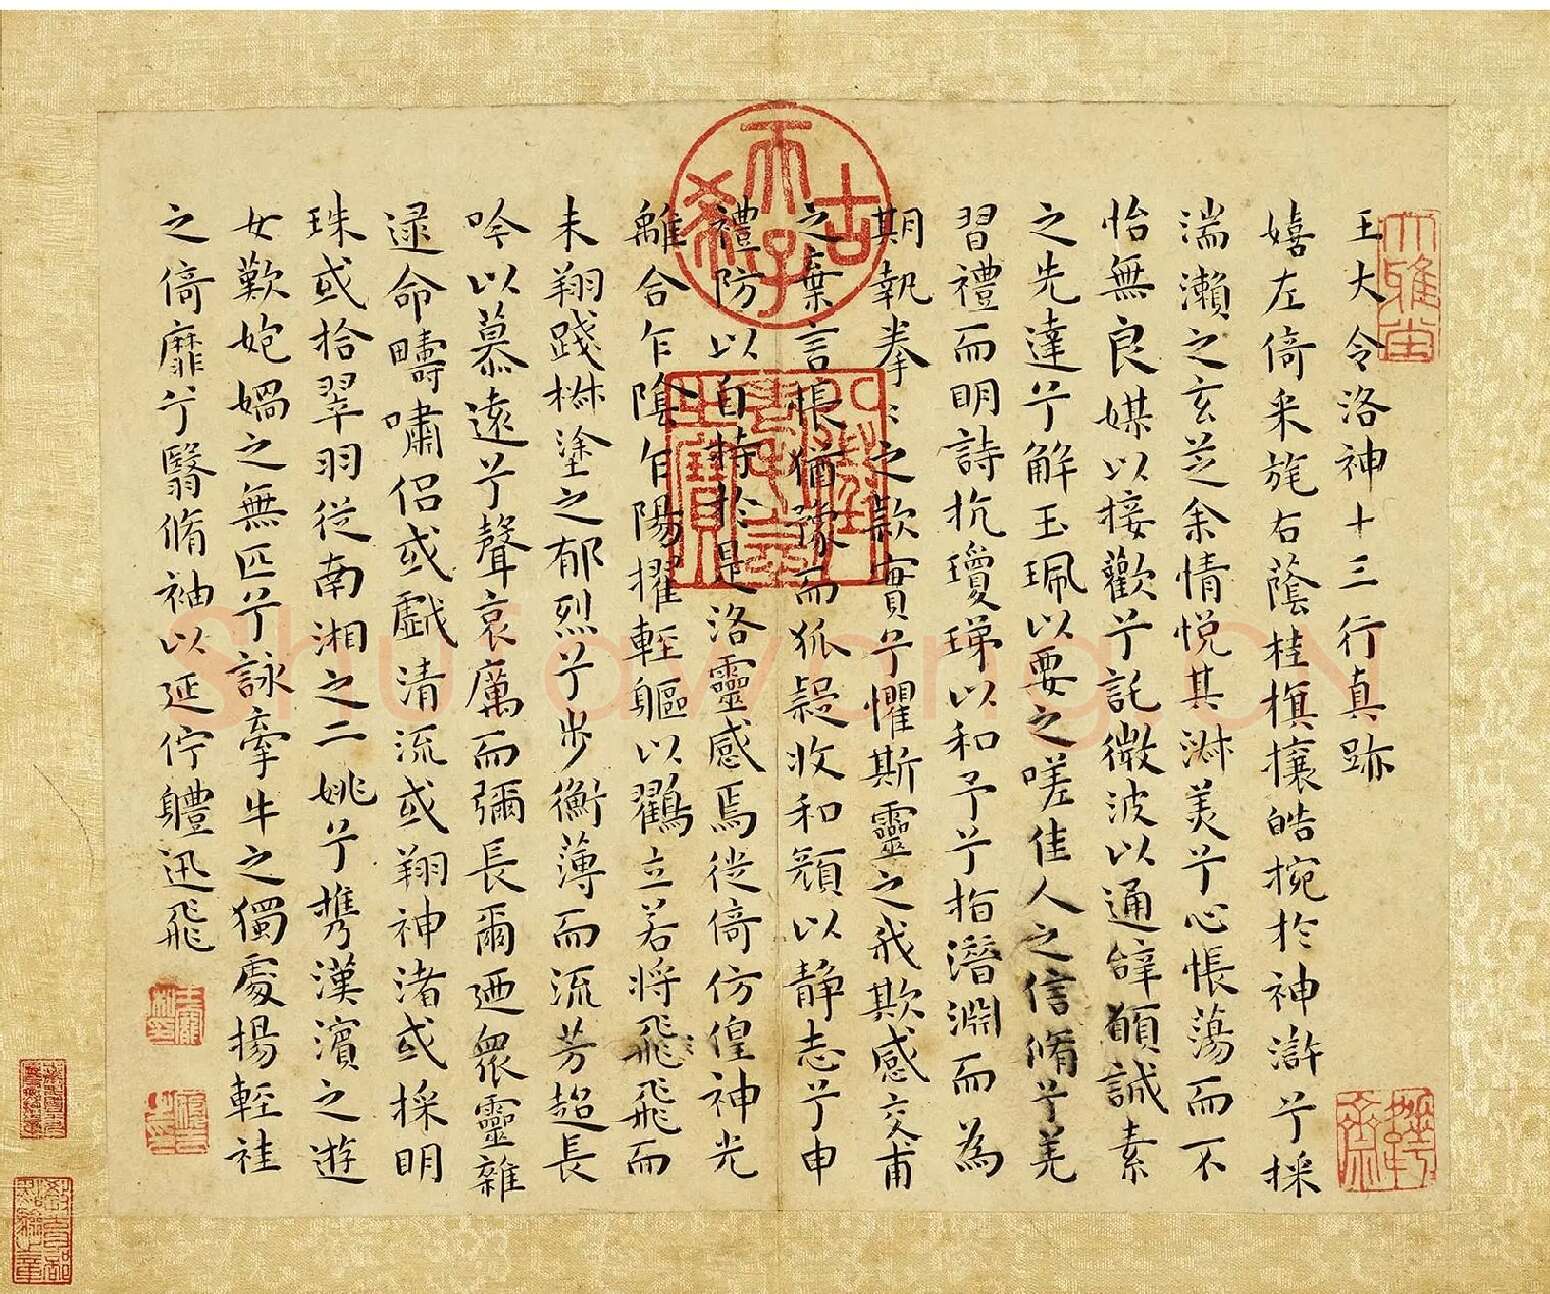 王大令洛神十三行真跡
嬉左倚采旄右蔭桂旗攘皓捥於神滸兮採
湍瀨之玄芝余情悅其淋美兮心悵蕩而不
怡無良媒以接歡兮託微波以通辭願誠素
之先達兮解玉珮以要之嗟佳人之信脩兮羌
習禮而明詩抗瓊珶以和予兮指潛淵而為
期執拳〻之款實兮懼斯靈之我欺感交甫
之棄言悵猶豫而狐疑收和顏以静志兮申
禮防以自持於是洛靈感焉徙倚仿偟神光
離合乍陰乍陽擢輕軀以鶴立若將飛飛而
未翔踐椒塗之郁烈兮步衡薄而流芳超長
吟以慕遠兮聲哀厲而彌長爾迺衆靈雜
遝命疇嘯侣或戲清流或翔神渚或採明
珠或拾翠羽從南湘之二姚兮攜漢濱之遊
女歎匏媧之無匹兮詠牽牛之獨處揚輕袿
之倚靡兮翳脩袖以延佇軆迅飛
古希天子
八徵耄念之寶
shufawang.cn